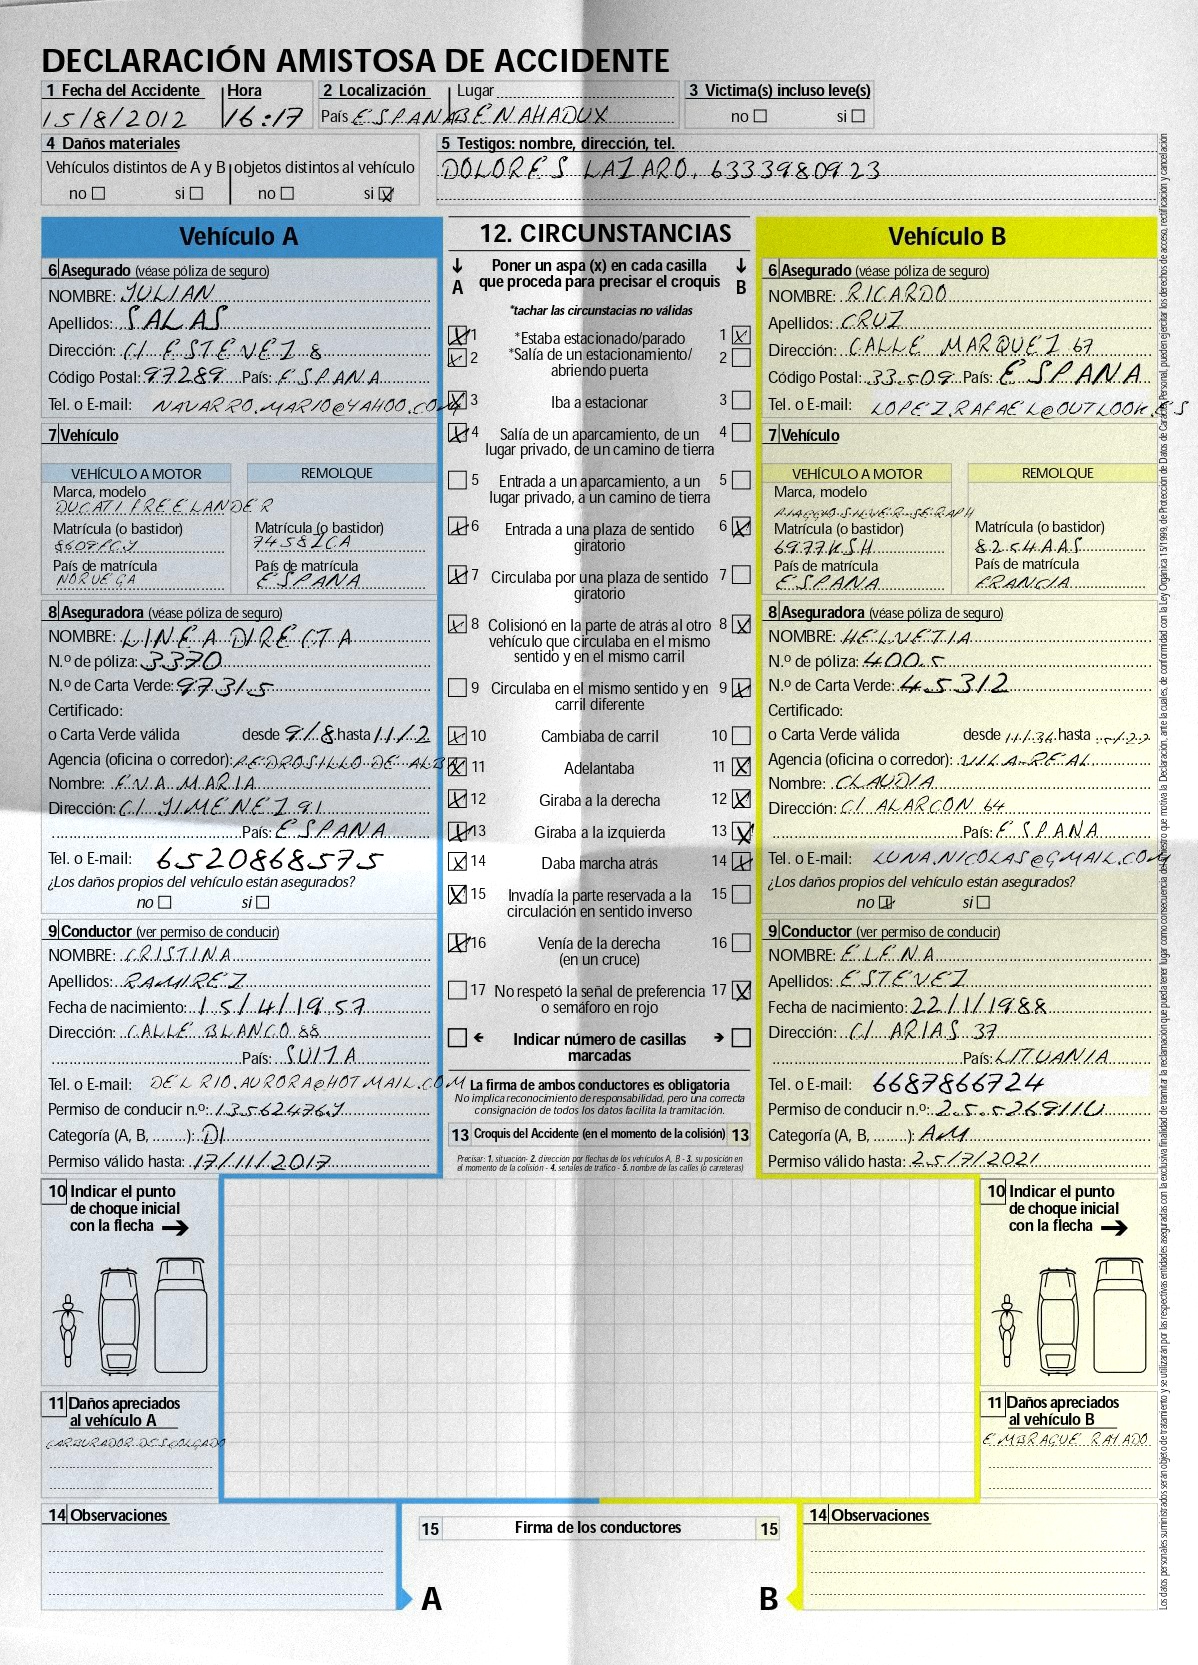 DECLARACIÓN AMISTOSA DE ACCIDENTE
1 Fecha del Accidente Hora
15/8/2012 16:17
2 Localización Lugar
País ESPANA BENAHADUX
3 Victima(s) incluso leve(s)
no si
4 Daños materiales
Vehículos distintos de A y B objetos distintos al vehículo
no si no si X
5 Testigos: nombre, dirección, tel.
DOLORES LAZARO, 6333980923
Vehículo A
6 Asegurado (véase póliza de seguro)
NOMBRE: JULIAN
Apellidos: SALAS
Dirección: C/ ESTEVEZ 8
Código Postal: 97289 País: ESPANA
Tel. o E-mail: NAVARRO.MARIO@YAHOO.COM
7 Vehículo
VEHÍCULO A MOTOR REMOLQUE
Marca, modelo
DUCATI FREELANDER
Matrícula (o bastidor) Matrícula (o bastidor)
8609FCY 7458ICA
País de matrícula País de matrícula
NORUEGA ESPANA
8 Aseguradora (véase póliza de seguro)
NOMBRE: LINEA DIRECTA
N.º de póliza: 3370
N.º de Carta Verde: 97315
Certificado:
o Carta Verde válida desde 9/8 hasta 11/2
Agencia (oficina o corredor): PEDROSILLO DE ALBA
Nombre: EVA MARIA
Dirección: C/ JIMENEZ 91
País: ESPANA
Tel. o E-mail: 6520868575
¿Los daños propios del vehículo están asegurados?
no si
9 Conductor (ver permiso de conducir)
NOMBRE: CRISTINA
Apellidos: RAMIREZ
Fecha de nacimiento: 15/4/1957
Dirección: CALLE BLANCO 88
País: SUIZA
Tel. o E-mail: DELRIO.AURORA@HOTMAIL.COM
Permiso de conducir n.º: 13562476J
Categoría (A, B, ........): D1
Permiso válido hasta: 17/11/2017
12. CIRCUNSTANCIAS
A Poner un aspa (x) en cada casilla que proceda para precisar el croquis B
*tachar las circunstacias no válidas
X 1 *Estaba estacionado/parado 1 X
X 2 *Salía de un estacionamiento/ 2
abriendo puerta
X 3 Iba a estacionar 3
X 4 Salía de un aparcamiento, de un 4
lugar privado, de un camino de tierra
5 Entrada a un aparcamiento, a un 5
lugar privado, a un camino de tierra
X 6 Entrada a una plaza de sentido 6 X
giratorio
X 7 Circulaba por una plaza de sentido 7
giratorio
X 8 Colisionó en la parte de atrás al otro 8 X
vehículo que circulaba en el mismo
sentido y en el mismo carril
9 Circulaba en el mismo sentido y en 9 X
carril diferente
X 10 Cambiaba de carril 10
X 11 Adelantaba 11 X
X 12 Giraba a la derecha 12 X
X 13 Giraba a la izquierda 13 X
X 14 Daba marcha atrás 14 X
X 15 Invadía la parte reservada a la 15
circulación en sentido inverso
X 16 Venía de la derecha 16
(en un cruce)
17 No respetó la señal de preferencia 17 X
o semáforo en rojo
Indicar número de casillas
marcadas
La firma de ambos conductores es obligatoria
No implica reconocimiento de responsabilidad, pero una correcta
consignación de todos los datos facilita la tramitación.
13 Croquis del Accidente (en el momento de la colisión) 13
Precisar: 1. situación- 2. dirección por flechas de los vehículos A, B - 3. su posición en
el momento de la colisión - 4. señales de tráfico - 5. nombre de las calles (o carreteras)
Vehículo B
6 Asegurado (véase póliza de seguro)
NOMBRE: RICARDO
Apellidos: CRUZ
Dirección: CALLE MARQUEZ 67
Código Postal: 33509 País: ESPANA
Tel. o E-mail: LOPEZ.RAFAEL@OUTLOOK.ES
7 Vehículo
VEHÍCULO A MOTOR REMOLQUE
Marca, modelo
PIAGGIO SILVER-SERAPH
Matrícula (o bastidor) Matrícula (o bastidor)
6977KSH 8254AAS
País de matrícula País de matrícula
ESPANA FRANCIA
8 Aseguradora (véase póliza de seguro)
NOMBRE: HELVETIA
N.º de póliza: 4005
N.º de Carta Verde: 45312
Certificado:
o Carta Verde válida desde hasta
Agencia (oficina o corredor): VILA-REAL
Nombre: CLAUDIA
Dirección: C/ ALARCON 64
País: ESPANA
Tel. o E-mail: LUNA.NICOLAS@GMAIL.COM
¿Los daños propios del vehículo están asegurados?
no X si
9 Conductor (ver permiso de conducir)
NOMBRE: ELENA
Apellidos: ESTEVEZ
Fecha de nacimiento: 22/1/1988
Dirección: C/ ARIAS 37
País: LITUANIA
Tel. o E-mail: 6687866724
Permiso de conducir n.º: 25526911U
Categoría (A, B, ........): AM
Permiso válido hasta: 25/7/2021
10 Indicar el punto
de choque inicial
con la flecha
11 Daños apreciados
al vehículo A
CARBURADOR DESCOLGADO
10 Indicar el punto
de choque inicial
con la flecha
11 Daños apreciados
al vehículo B
EMBRAGUE RAYADO
14 Observaciones
15 Firma de los conductores 15
A B
14 Observaciones